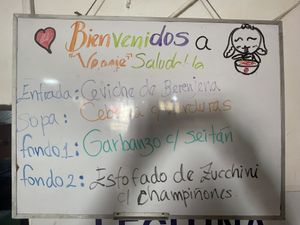 Bienvenidos a
"Veronje" Saludable
Entrada: Ceviche de Berenjena
Sopa: Cebolla y Verduras
fondo 1: Garbanzo c/ seitán
fondo 2: Estofado de Zucchini
c/ champiñones